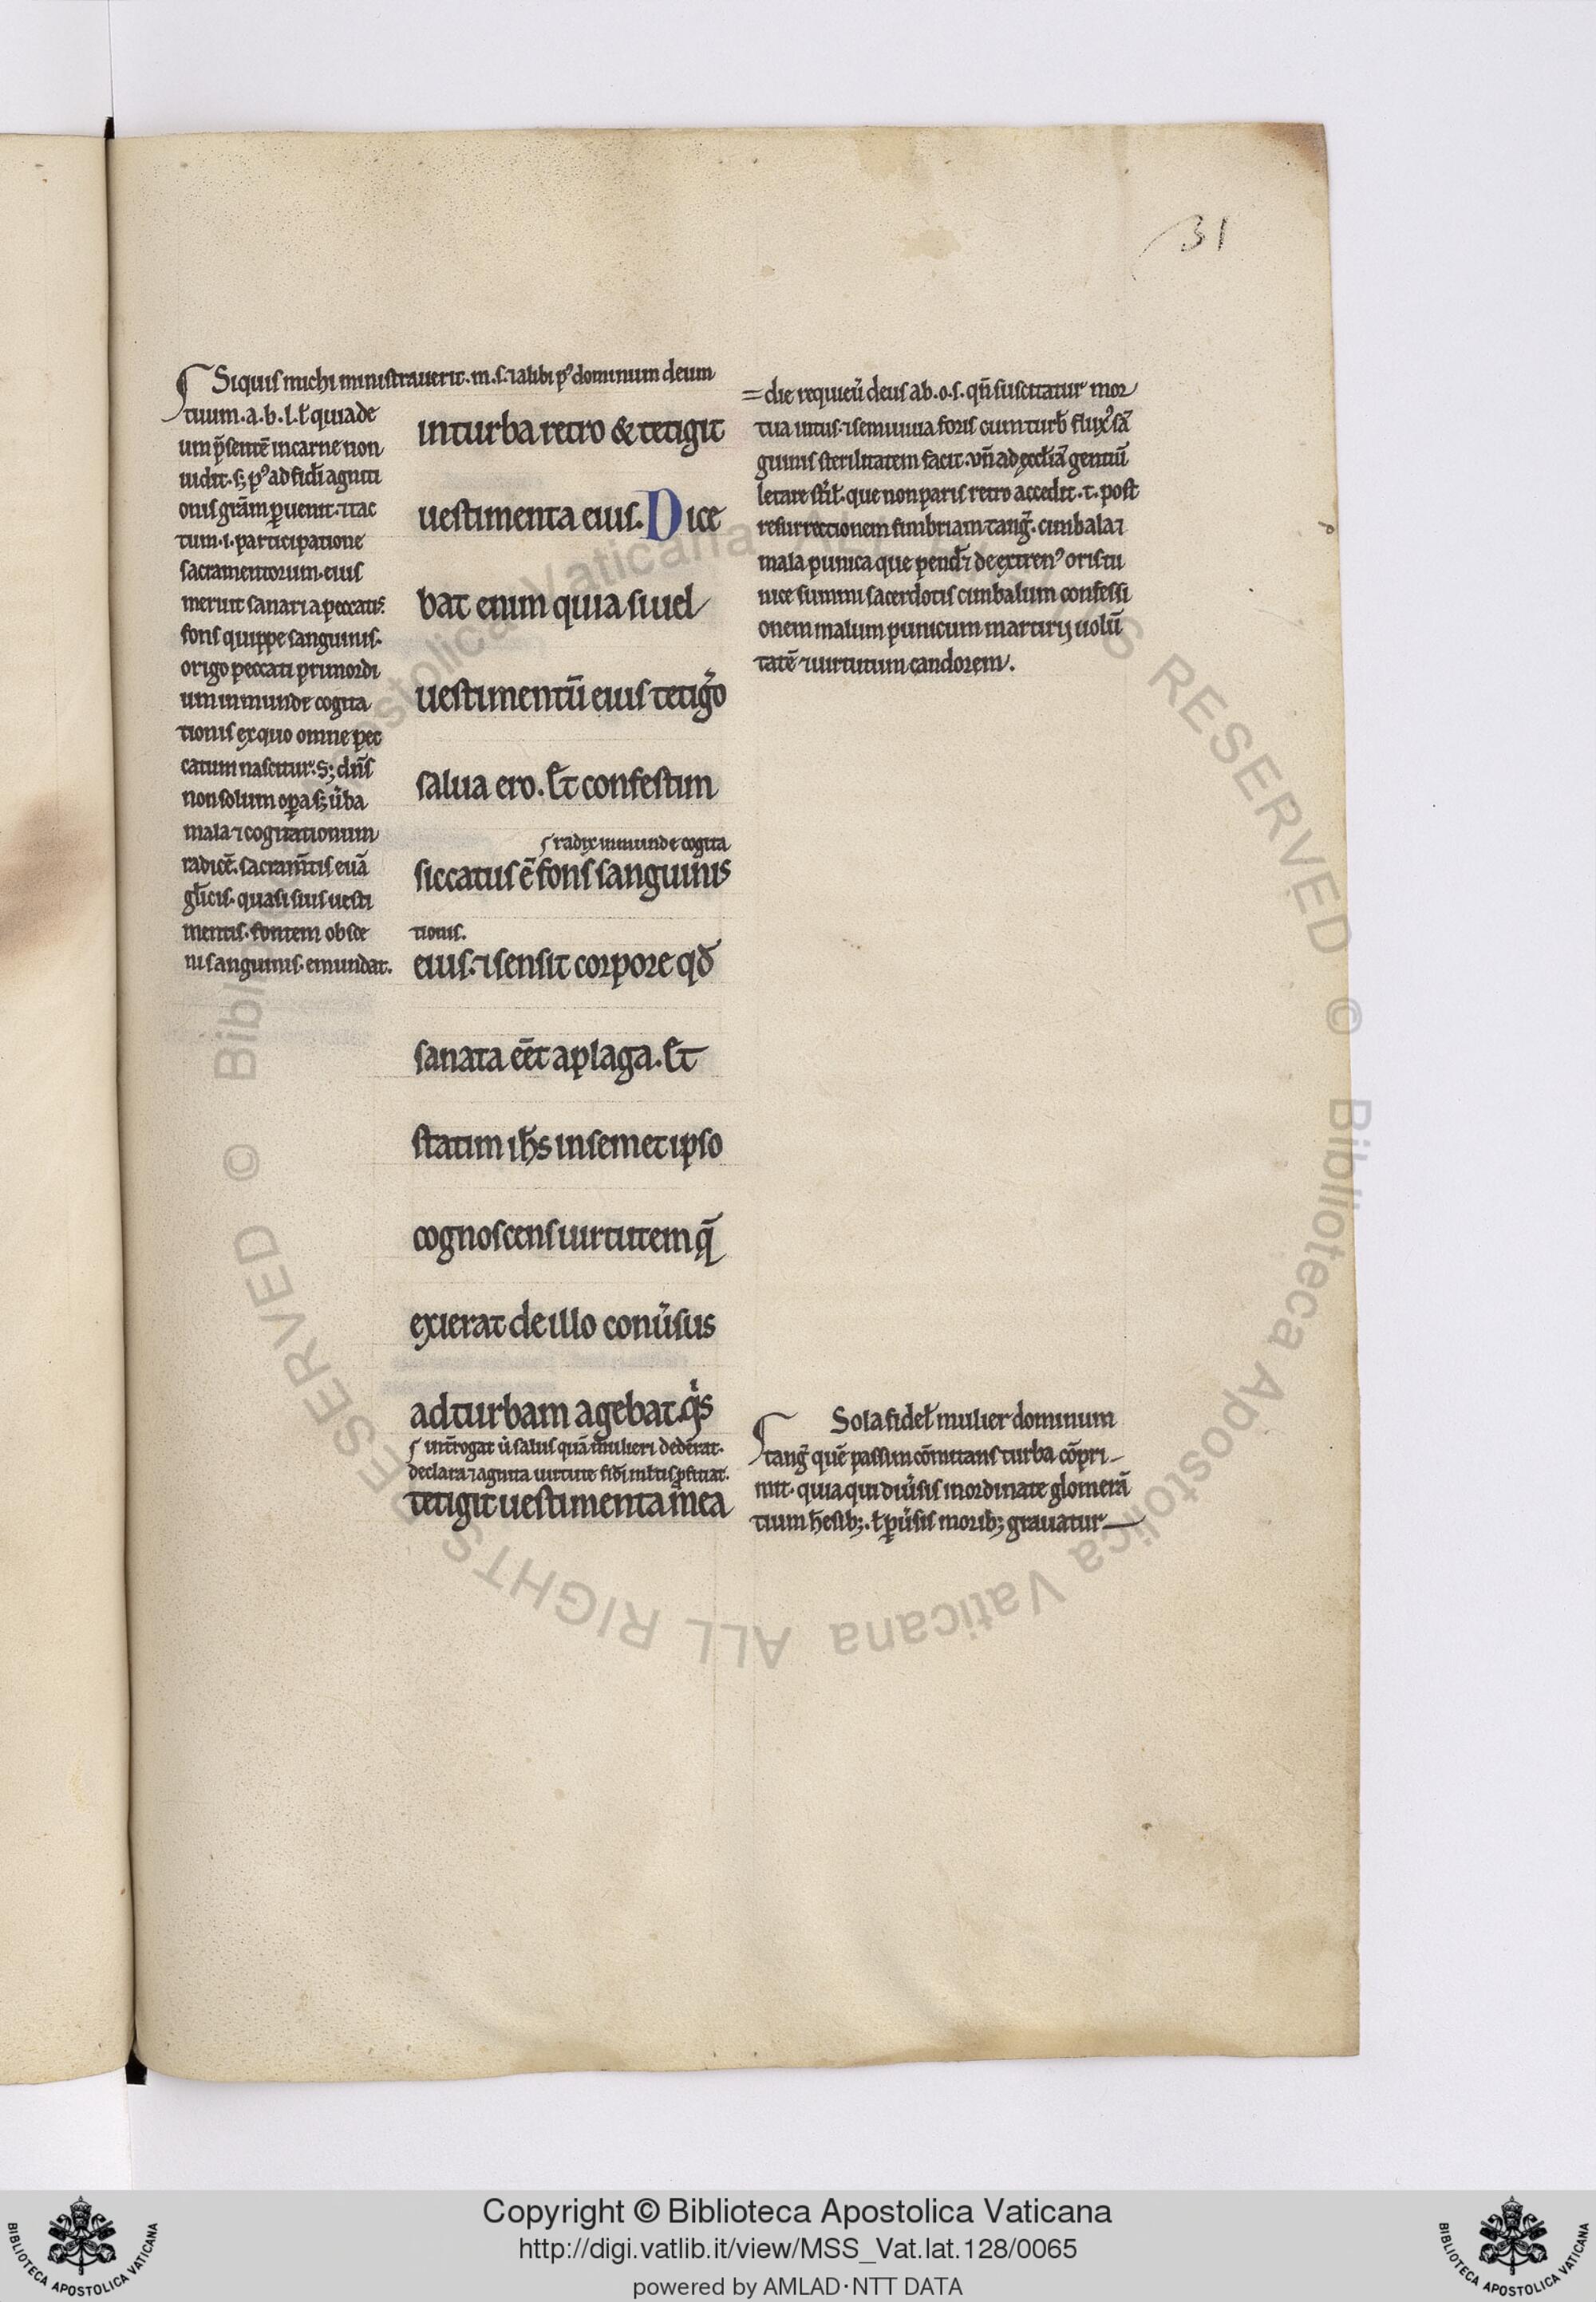 31
Si quis michi ministrauerit. m. s. ⁊ alibi pꝰ dominum deum
tuum. a. b. l. ł quia de
um p̄sentē in carne non
uidit. sꝫ pꝰ ad fidei agniti
onis grām peruenit. ⁊ tac
tum .i. participatione
sacramentorum eius
meruit sanari a peccatis.
fons quippe sanguinis.
origo peccati primordi
um inmunde cogita
tionis ex quo omne pec
catum nascitur. Sꝫ dn̄s
non solum opera sꝫ u̾ba
mala ⁊ cogitationum
radicē. sacram̄tis euā
gl̄icis. quasi suis uesti
mentis. fontem obsce
ni sanguinis. emundat.
in turba retro & tetigit
uestimenta eius. Dice
bat enim quia si uel
uestimentū eius tetig̾o
salua ero. Et confestim
radix inmunde cogita
siccatus ē fons sanguinis
tionis.
eius. ⁊ sensit corpore qđ
sanata eēt a plaga. Et
statim ih̄s in semet ipso
cognoscens uirtutem q̄
exierat de illo conu̾sus
ad turbam agebat. qͥs
int̄rogat ut salus quā mulieri dederat.
declarata ⁊ agnita uirtute
tetigit uestimenta mea
= die requieū deus ab. o. s. qn̄ suscitatur mor
tua intus. ⁊ semiuiua foris cum turb̄ fluxꝰ sā
guinis sterilitatem facit. vn̄ ad eccłiā gentiū
letare stł. que non paris retro accedit. t. post
resurrectionem fimbriam tang̾. cimbala ⁊
mala punica que pendēt de extremꝰ oris tu
nice summi sacerdotis cimbalum confessi
onem malum punicum martirij uolū
tatē ⁊ uirtutum candorem.
Sola fidel mulier dominum
tang̾ quē passim cōmitans turba cōpri-
mit. quia qui diu̾sis inordinate glomerā
tium h̄esibꝫ. ł pu̾sis moribꝫ grauatur
Copyright © Biblioteca Apostolica Vaticana
http://digi.vatlib.it/view/MSS_Vat.lat.128/0065
powered by AMLAD·NTT DATA
BIBLIOTECA APOSTOLICA VATICANA
BIBLIOTECA APOSTOLICA VATICANA
© Biblioteca Apostolica Vaticana ALL RIGHTS RESERVED © Biblioteca Apostolica Vaticana ALL RIGHTS RESERVED